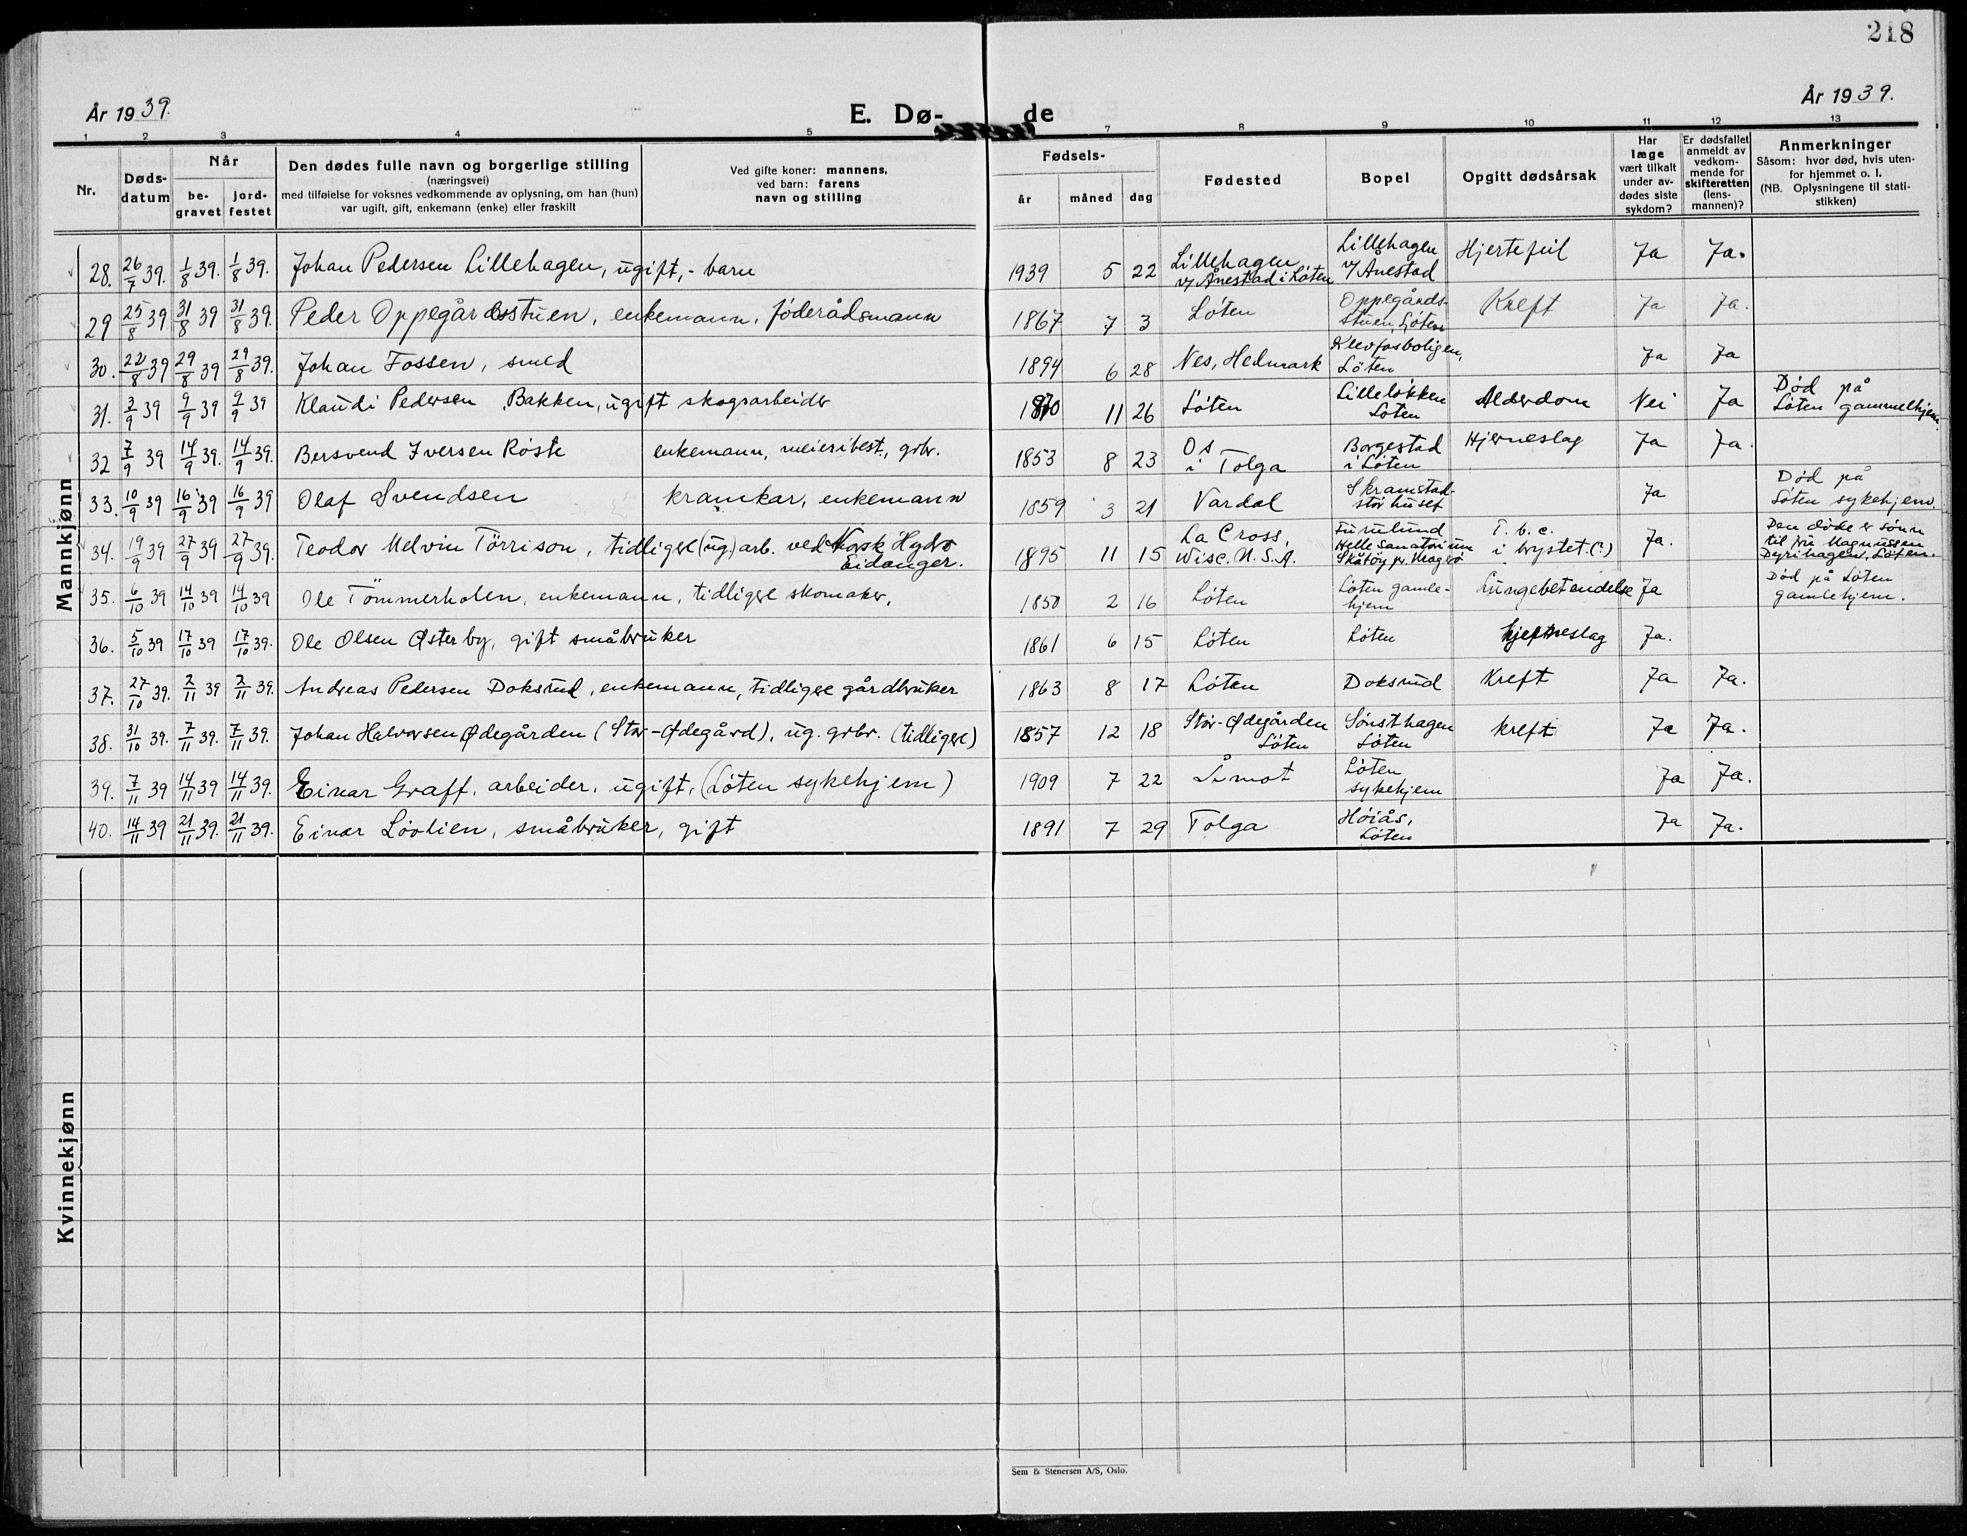 218
År 1939.
E. Dø-
de
År 1939.
1 2 3 4 5 7 8 9 10 11 12 13
Nr.
Døds-
datum
Når
be-
gravet
jord-
festet
Den dødes fulle navn og borgerlige stilling
(næringsvei)
med tilføielse for voksnes vedkommende av oplysning, om han (hun)
var ugift, gift, enkemann (enke) eller fraskilt
Ved gifte koner: mannens,
ved barn: farens
navn og stilling
Fødsels-
år
måned
dag
Fødested
Bopel
Opgitt dødsårsak
Har
læge
vært tilkalt
under av-
dødes siste
sykdom?
Er dødsfallet
anmeldt av
vedkom-
mende for
skifteretten
(lens-
mannen)?
Anmerkninger
Såsom: hvor død, hvis uten-
for hjemmet o. l.
(NB. Oplysningene til stati-
stikken)
Mannkjønn
28. 26/7 39. 1/8 39. 1/8 39. Johan Pedersen Lillehagen, ugift, - barn 1939 5 22 Lillehagen v/ Ånestad i Løten Lillehagen v/ Ånestad Hjertefeil Ja Ja.
29 25/8 39 31/8 39 31/8 39. Peder Oppegårdsstuen, enkemann, føderådsmann 1867 7 3 Løten Oppegårds-stuen, Løten Kreft Ja Ja.
30. 22/8 39 29/8 39 29/8 39. Johan Fossen, smed 1894 6 28 Nes, Hedmark Klevfosboligen, Løten Ja Ja
31. 3/9 39 9/9 39 9/9 39 Klaudi Pedersen Bakken, ugift skogsarbeider 1870 11 26 Løten Lilleløkken Løten Alderdom Nei Ja Død på Løten gammelhjem.
32 7/9 39 14/9 39. 14/9 39. Bersvend Iversen Røste enkemann, meieribest., grbr. 1853 8 23 Os i Tolga Borgestad i Løten Hjerneslag Ja Ja.
33. 10/9 39 16/9 39 16/9 39 Olaf Svendsen kramkar, enkemann 1859 3 21 Vardal Skramstad-størhuset Ja Død på Løten sykehjem.
34. 19/9 39 27/9 39 27/9 39. Teodor Melvin Törrison, tidligere (ug.) arb. ved Norsk Hydro Eidanger. 1895 11 15 La Cross, Wisc. U.S.A. Furulund Helle Sanatorium Skåtøy pr. T.b.c. i brystet (?) Ja. Den døde er sønn til fru Magnussen Dyrihagen, Løten.
35. 6/10 39 14/10 39 14/10 39 Ole Tömmerholen, enkemann, tidligere skomaker, 1850 2 16 Løten Løten gamle-hjem Lungebetendelse Ja Død på Løten gamlehjem.
36. 5/10 39 17/10 39 17/10 39. Ole Olsen Østerby, gift småbruker 1861 6 15 Løten Løten Hjerneslag Ja.
37. 27/10 39. 2/11 39 2/11 39. Andreas Pedersen Doksrud, enkemann, tidligere gårdbruker 1863 8 17 Løten Doksrud Kreft Ja Ja.
38. 31/10 39. 7/11 39. 7/11 39. Johan Halvorsen Ødegården (Stor-Ødegård), ug. grbr. (tidligere) 1857 12 18 Stor-Ødegården Løten Sønsthagen Løten Kreft Ja Ja.
39. 7/11 39 14/11 39 14/11 39. Einar Graff, arbeider, ugift, (Løten sykehjem) 1909 7 22 Åmot Løten sykehjem Ja Ja.
40. 14/11 39 21/11 39. 21/11 39. Einar Lövlien, småbruker, gift 1891 7 29 Tolga Høiås, Løten Ja Ja.
Kvinnekjønn
Sem & Stenersen A/S, Oslo.